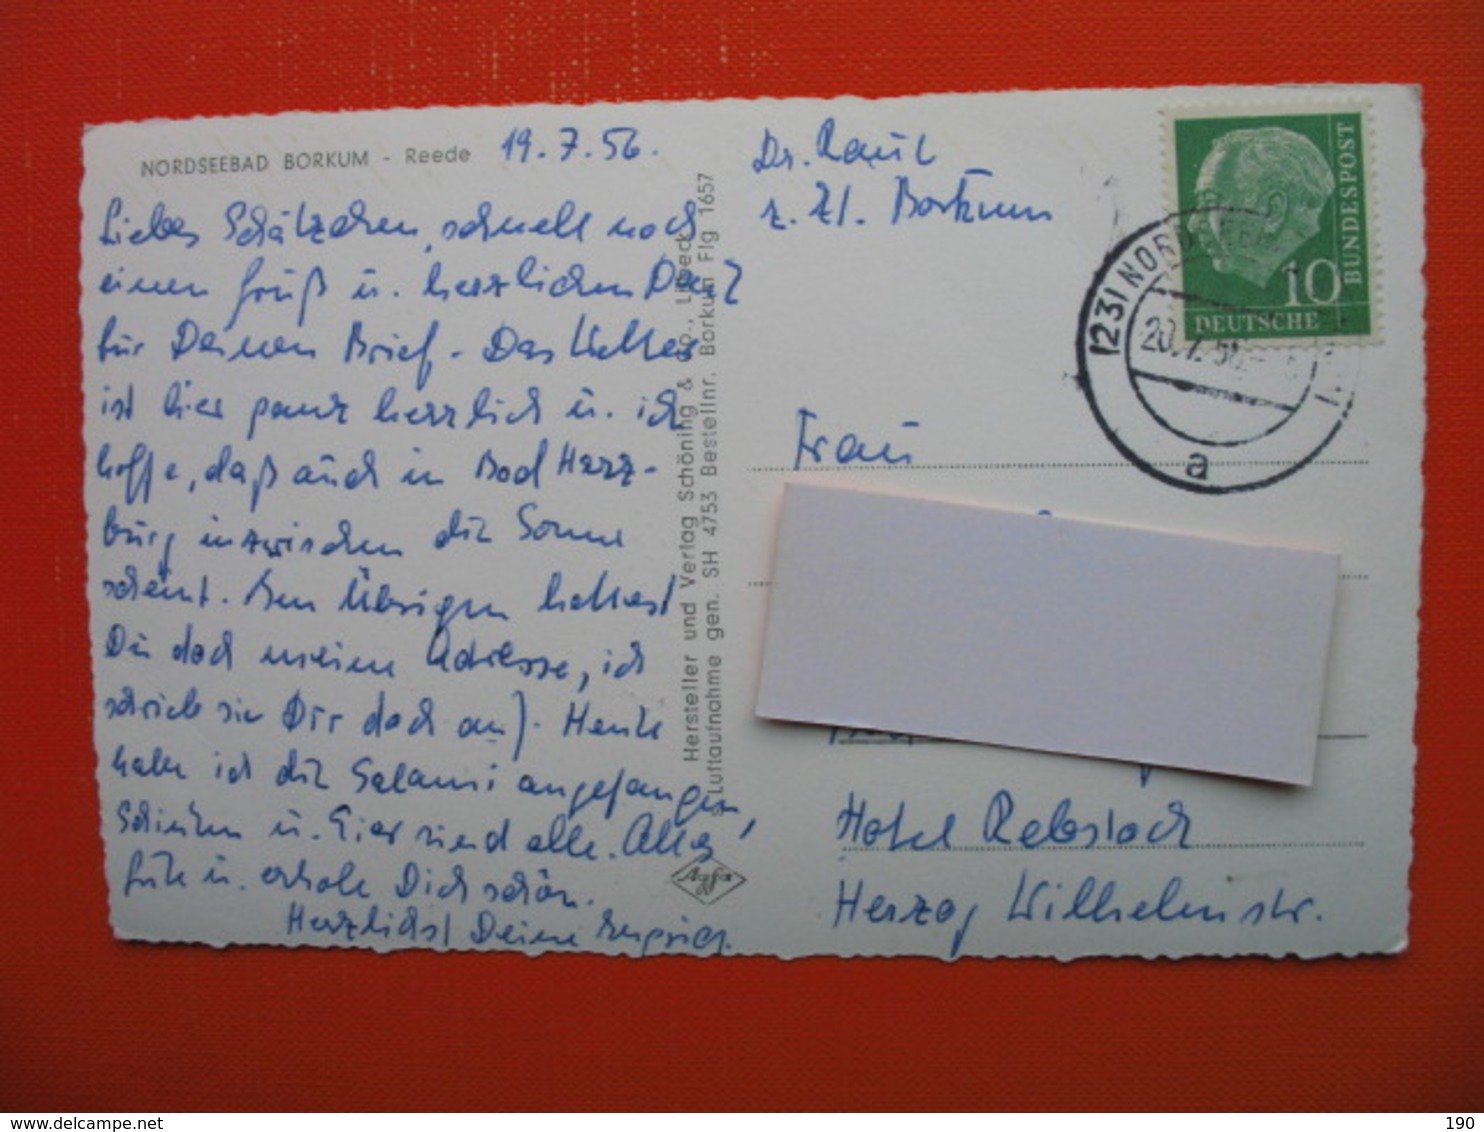 NORDSEEBAD BORKUM - Reede
19.7.56.
Liebes Schätzchen, schnell noch
einen Gruß u. herzlichen Dank
für Deinen Brief. Das Wetter
ist hier ganz herzlich u. ich
hoffe, daß auch in Bad Harz-
burg inzwischen die Sonne
scheint. Im Übrigen hattest
Du doch meine Adresse, ich
schrieb sie Dir doch auf. Heute
habe ich die Salami angefangen,
Schinken u. Eier sind alle. Alles
Gute u. erhole Dich schön.
Herzlichst Deine
Hersteller und Verlag Schöning & Co., Lübeck
Luftaufnahme gen. SH 4753 Bestellnr. Borkum Flg 1657
Agfa
Dr. Rauh
z. Zt. Borkum
BUNDESPOST
10
DEUTSCHE
(23) NORD
20.7.56
a
Frau
Hotel Rebstock
Herzog Wilhelmstr.
190